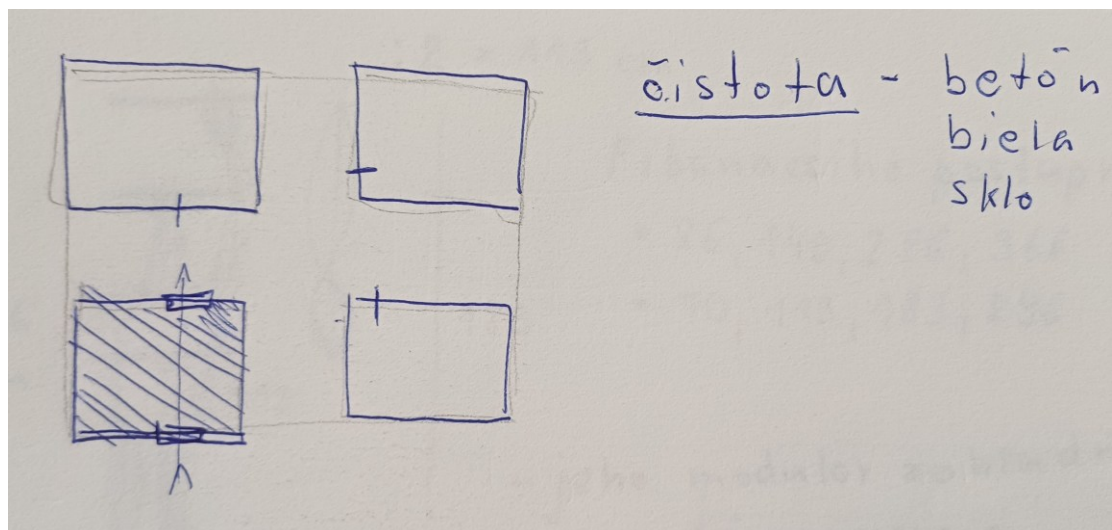 čistota - betón
biela
sklo